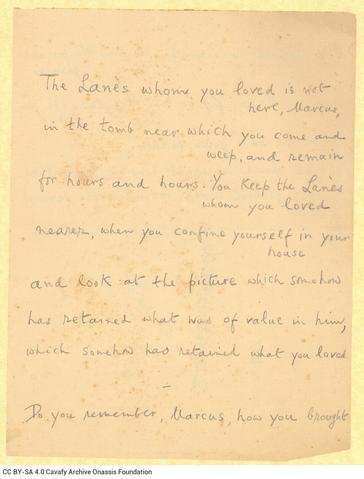 The Lanès whom you loved is not
here, Marcus,
in the tomb near which you come and
weep, and remain
for hours and hours. You keep the Lanès
whom you loved
nearer, when you confine yourself in your
house
and look at the picture which somehow
has retained what was of value in him,
which somehow has retained what you loved
—
Do you remember, Marcus, how you brought
CC BY-SA 4.0 Cavafy Archive Onassis Foundation